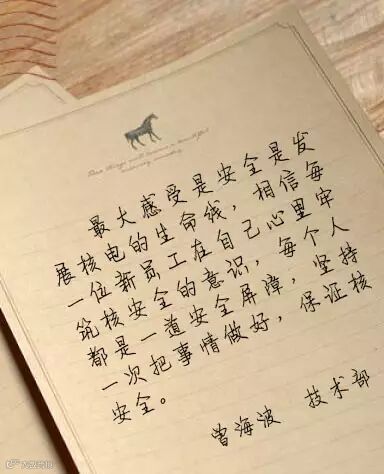 最大感受是安全是发
展核电的生命线，相信每
一位新员工在自己心里牢
筑核安全的意识，每个人
都是一道安全屏障，坚持
一次把事情做好，保证核
安全。
曾海波 技术部